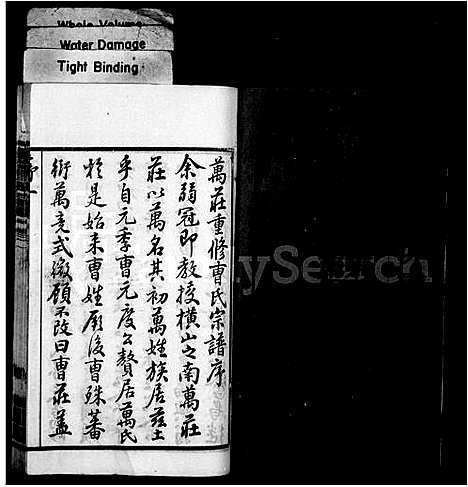 Whole Volume
Water Damage
Tight Binding
萬莊重修曹氏宗譜序
余弱冠即教授橫山之南萬莊
莊以萬名其初萬姓族居茲土
乎自元季曹元度公贅居萬氏
於是始來曹姓厥後曹殊蕃
衍萬竟式微顧不改曰曹莊蓋